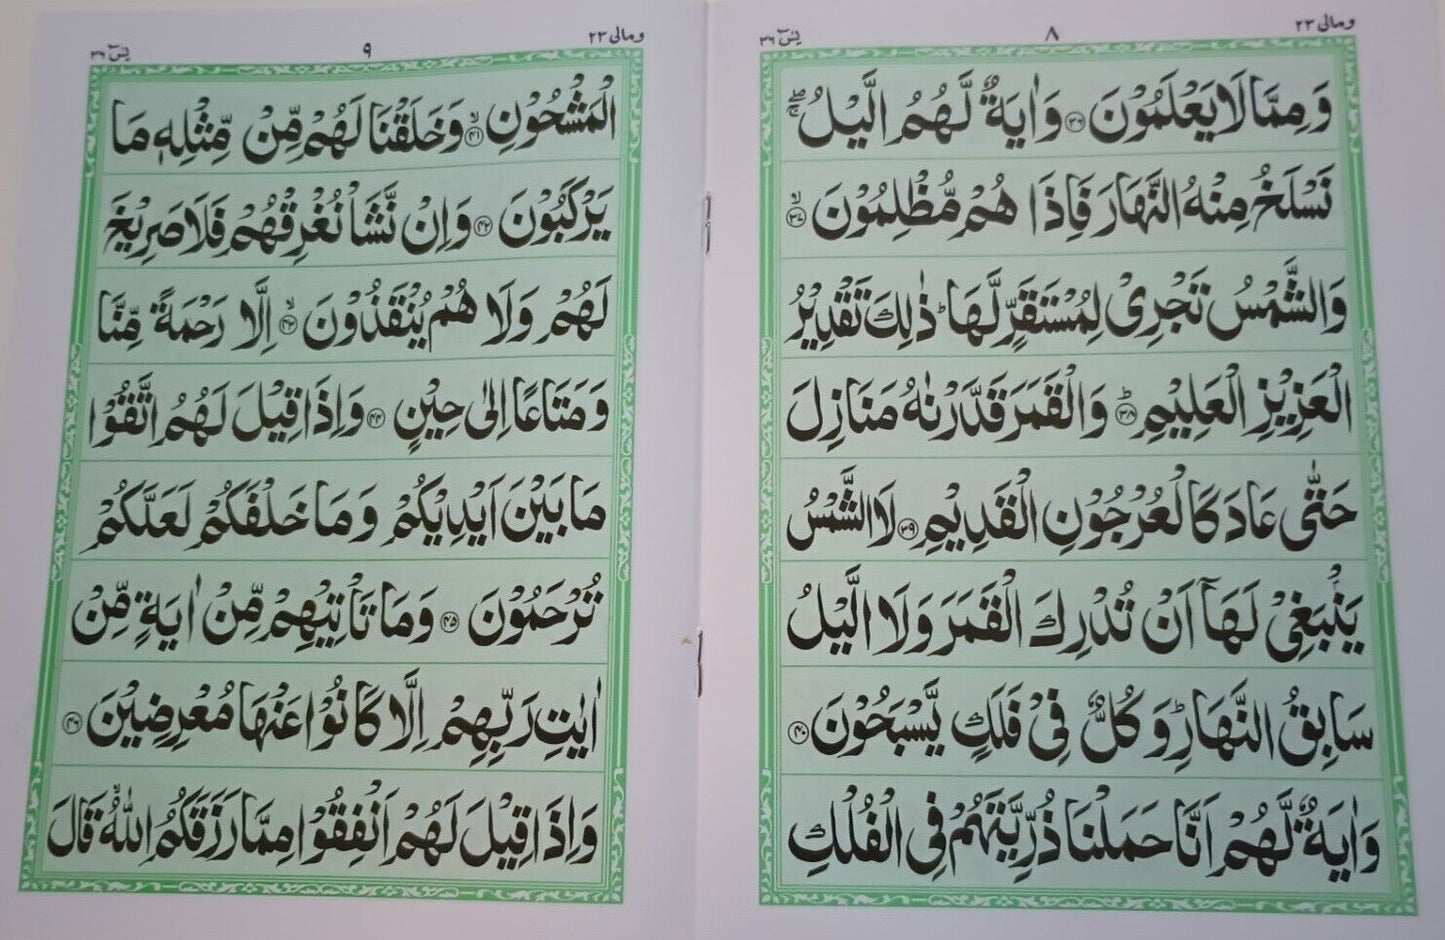 ومالی ۲۳
۸
یٰسٓ ۳۶
وَ مِمَّا لَا یَعْلَمُوْنَ ۳۶ وَ اٰیَةٌ لَّهُمُ الَّیْلُ ۖۚ
نَسْلَخُ مِنْهُ النَّهَارَ فَاِذَا هُمْ مُّظْلِمُوْنَ ۙ ۳۷
وَ الشَّمْسُ تَجْرِیْ لِمُسْتَقَرٍّ لَّهَا ؕ ذٰلِكَ تَقْدِیْرُ
الْعَزِیْزِ الْعَلِیْمِ ؕ ۳۸ وَ الْقَمَرَ قَدَّرْنٰهُ مَنَازِلَ
حَتّٰی عَادَ كَالْعُرْجُوْنِ الْقَدِیْمِ ۳۹ لَا الشَّمْسُ
یَنْۢبَغِیْ لَهَاۤ اَنْ تُدْرِكَ الْقَمَرَ وَ لَا الَّیْلُ
سَابِقُ النَّهَارِ ؕ وَ كُلٌّ فِیْ فَلَكٍ یَّسْبَحُوْنَ ۴۰
وَ اٰیَةٌ لَّهُمْ اَنَّا حَمَلْنَا ذُرِّیَّتَهُمْ فِی الْفُلْكِ
ومالی ۲۳
۹
یٰسٓ ۳۶
الْمَشْحُوْنِ ۙ ۴۱ وَ خَلَقْنَا لَهُمْ مِّنْ مِّثْلِهٖ مَا
یَرْكَبُوْنَ ۴۲ وَ اِنْ نَّشَاْ نُغْرِقْهُمْ فَلَا صَرِیْخَ
لَهُمْ وَ لَا هُمْ یُنْقَذُوْنَ ۙ ۴۳ اِلَّا رَحْمَةً مِّنَّا
وَ مَتَاعًا اِلٰی حِیْنٍ ۴۴ وَ اِذَا قِیْلَ لَهُمُ اتَّقُوْا
مَا بَیْنَ اَیْدِیْكُمْ وَ مَا خَلْفَكُمْ لَعَلَّكُمْ
تُرْحَمُوْنَ ۴۵ وَ مَا تَاْتِیْهِمْ مِّنْ اٰیَةٍ مِّنْ
اٰیٰتِ رَبِّهِمْ اِلَّا كَانُوْا عَنْهَا مُعْرِضِیْنَ ۴۶
وَ اِذَا قِیْلَ لَهُمْ اَنْفِقُوْا مِمَّا رَزَقَكُمُ اللّٰهُ ۙ قَالَ